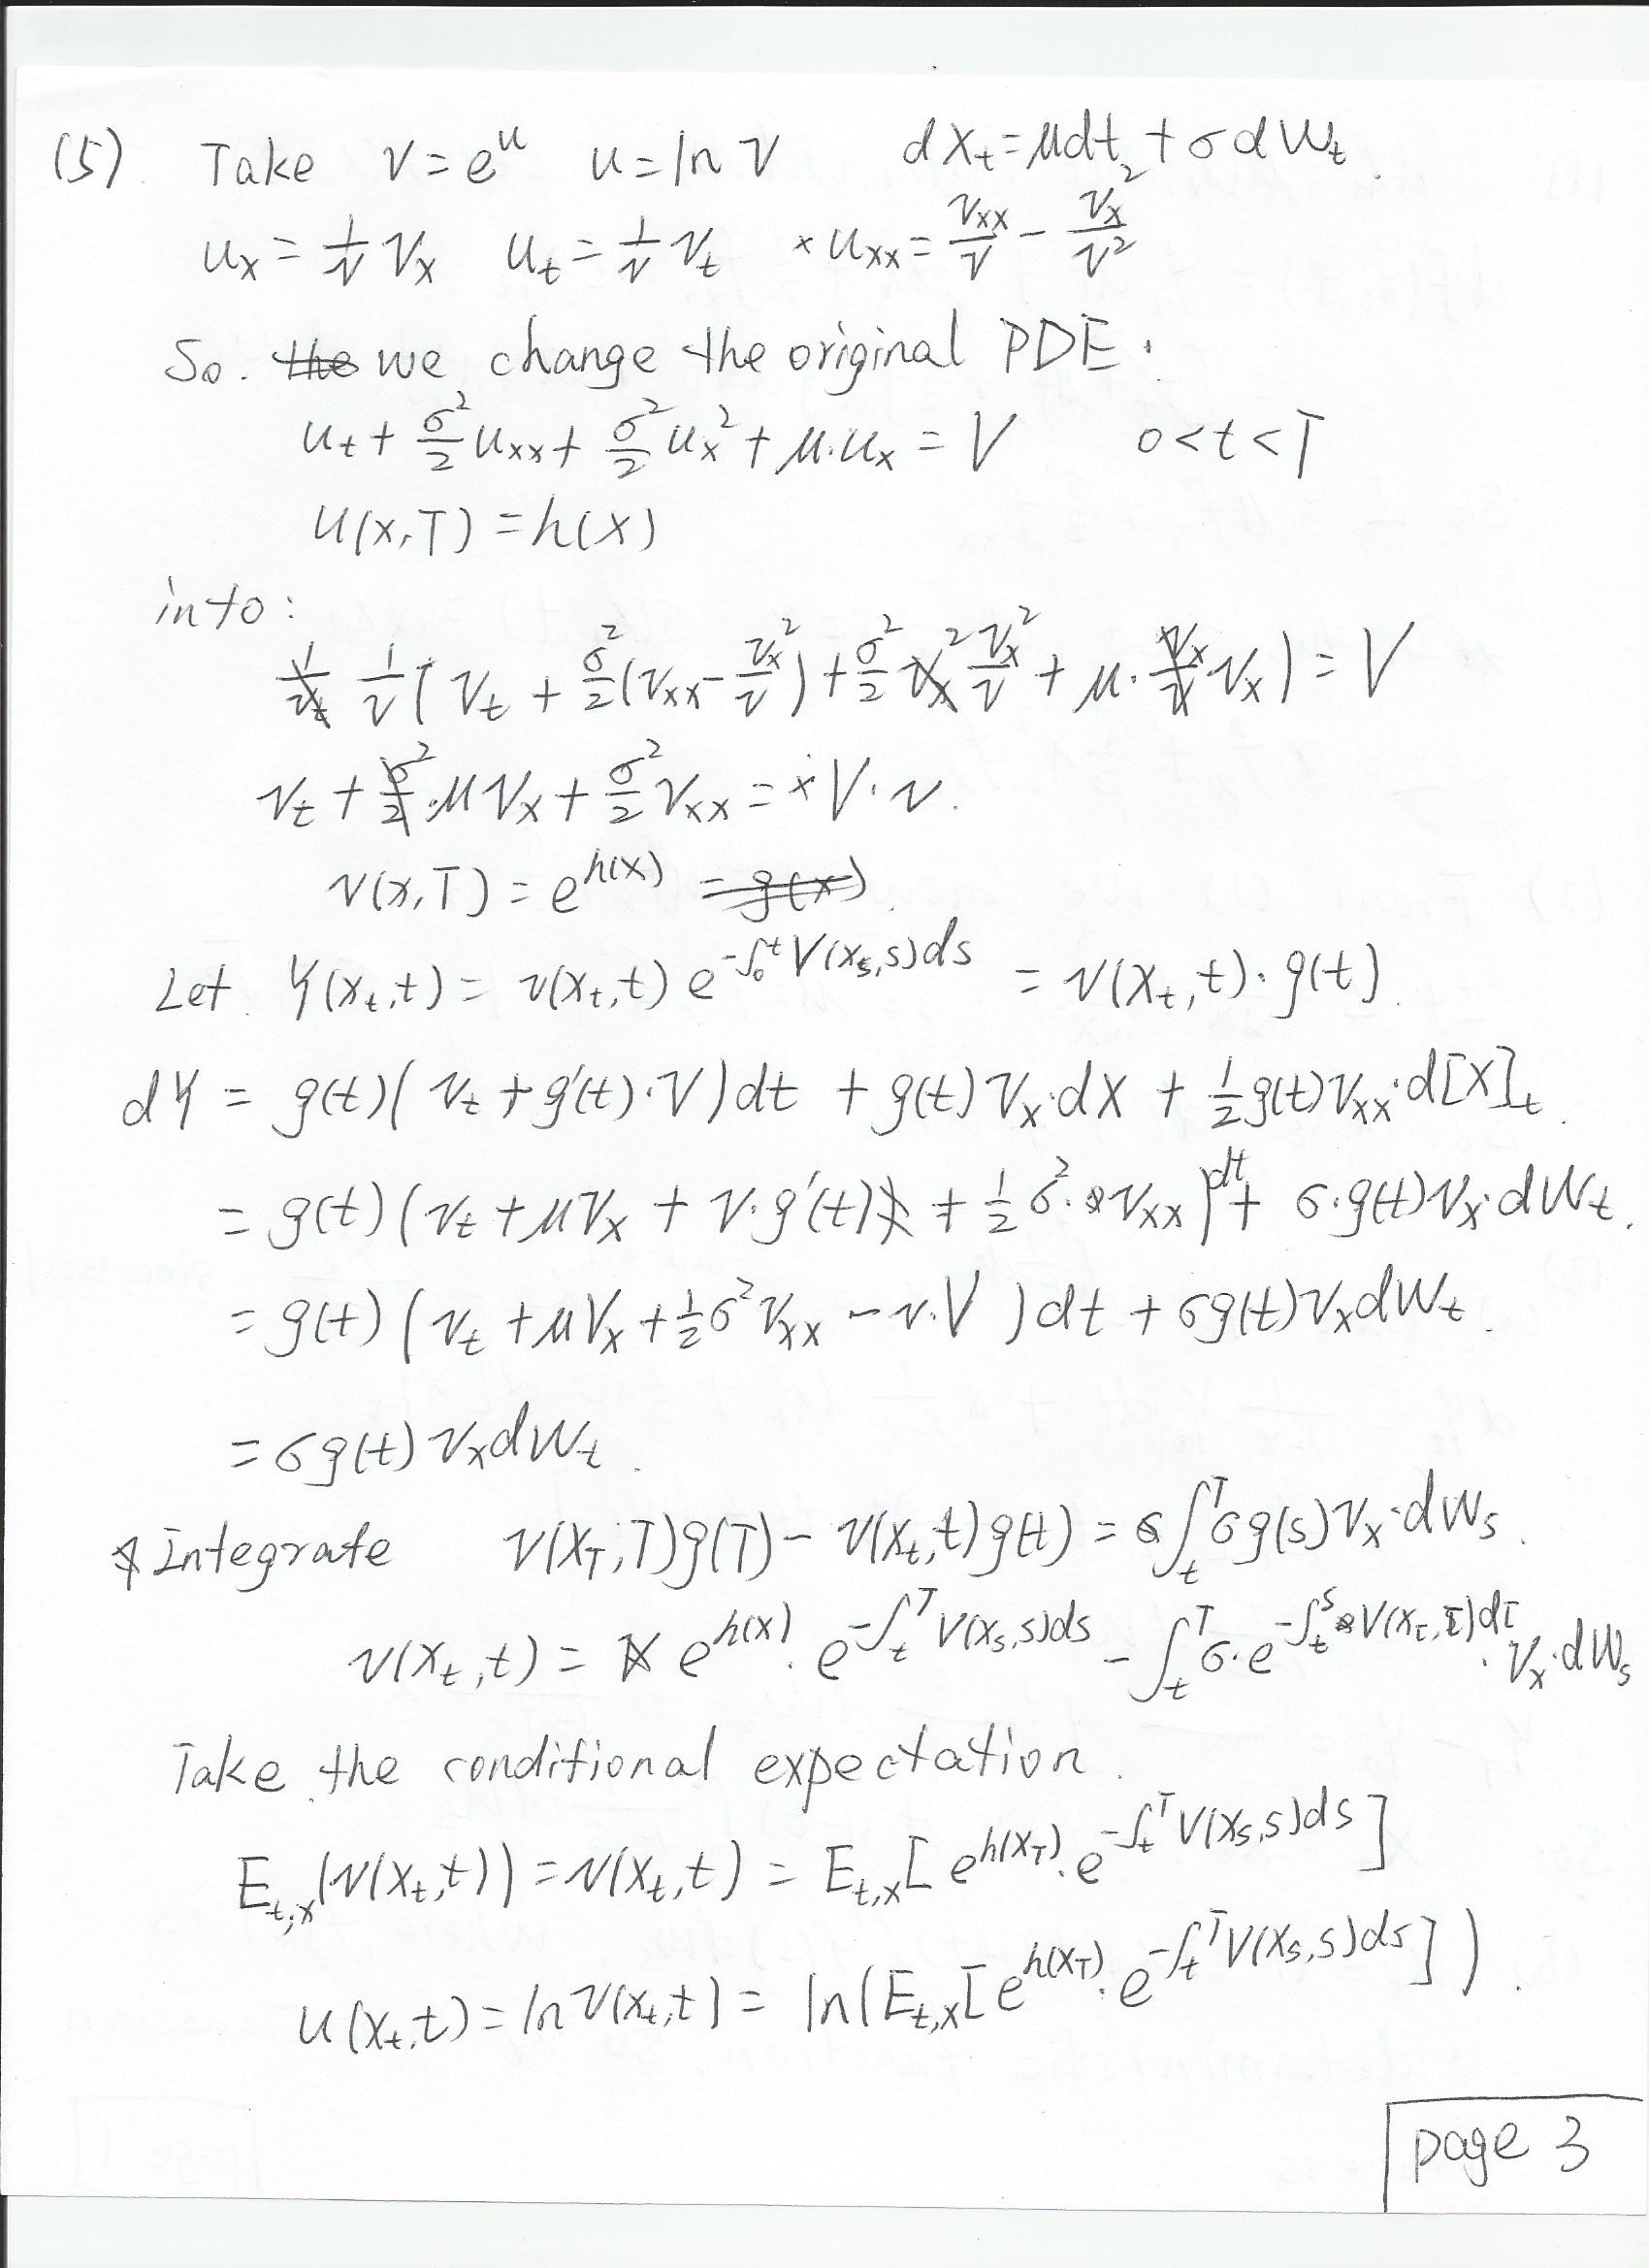 (5) Take v = e^u u = ln v dX_t = μdt + σdW_t.
u_x = 1/v v_x u_t = 1/v v_t u_xx = v_xx/v - v_x^2/v^2
So. we change the original PDE.
u_t + σ^2/2 u_xx + σ^2/2 u_x^2 + μ·u_x = V 0<t<T
u(x,T) = h(x)
into:
1/v ( v_t + σ^2/2 (v_xx - v_x^2/v) + σ^2/2 v_x^2/v + μ· v_x ) = V
v_t + μ v_x + σ^2/2 v_xx = V·v.
v(x,T) = e^{h(x)}
Let Y(x_t,t) = v(x_t,t) e^{-∫_0^t V(x_s,s)ds} = v(x_t,t)·g(t).
dY = g(t)( v_t + g'(t)·V)dt + g(t) v_x·dX + 1/2 g(t) v_xx·d[X]_t.
= g(t) (v_t + μv_x + v·g'(t) + 1/2 σ^2· v_xx)dt + σ·g(t) v_x·dW_t.
= g(t) (v_t + μv_x + 1/2 σ^2 v_xx - v·V ) dt + σg(t) v_x dW_t.
= σg(t) v_x dW_t.
Integrate v(X_T,T)g(T) - v(X_t,t)g(t) = ∫_t^T σg(s) v_x·dW_s.
v(X_t,t) = e^{h(x)}· e^{-∫_t^T V(x_s,s)ds} - ∫_t^T σ·e^{-∫_t^s V(x_τ,τ)dτ}·v_x·dW_s
Take the conditional expectation.
E_{t,x}(v(X_t,t)) = v(X_t,t) = E_{t,x}[ e^{h(X_T)}·e^{-∫_t^T V(X_s,s)ds} ]
u(X_t,t) = ln v(X_t,t) = ln(E_{t,x}[e^{h(X_T)}·e^{-∫_t^T V(X_s,s)ds}]).
page 3